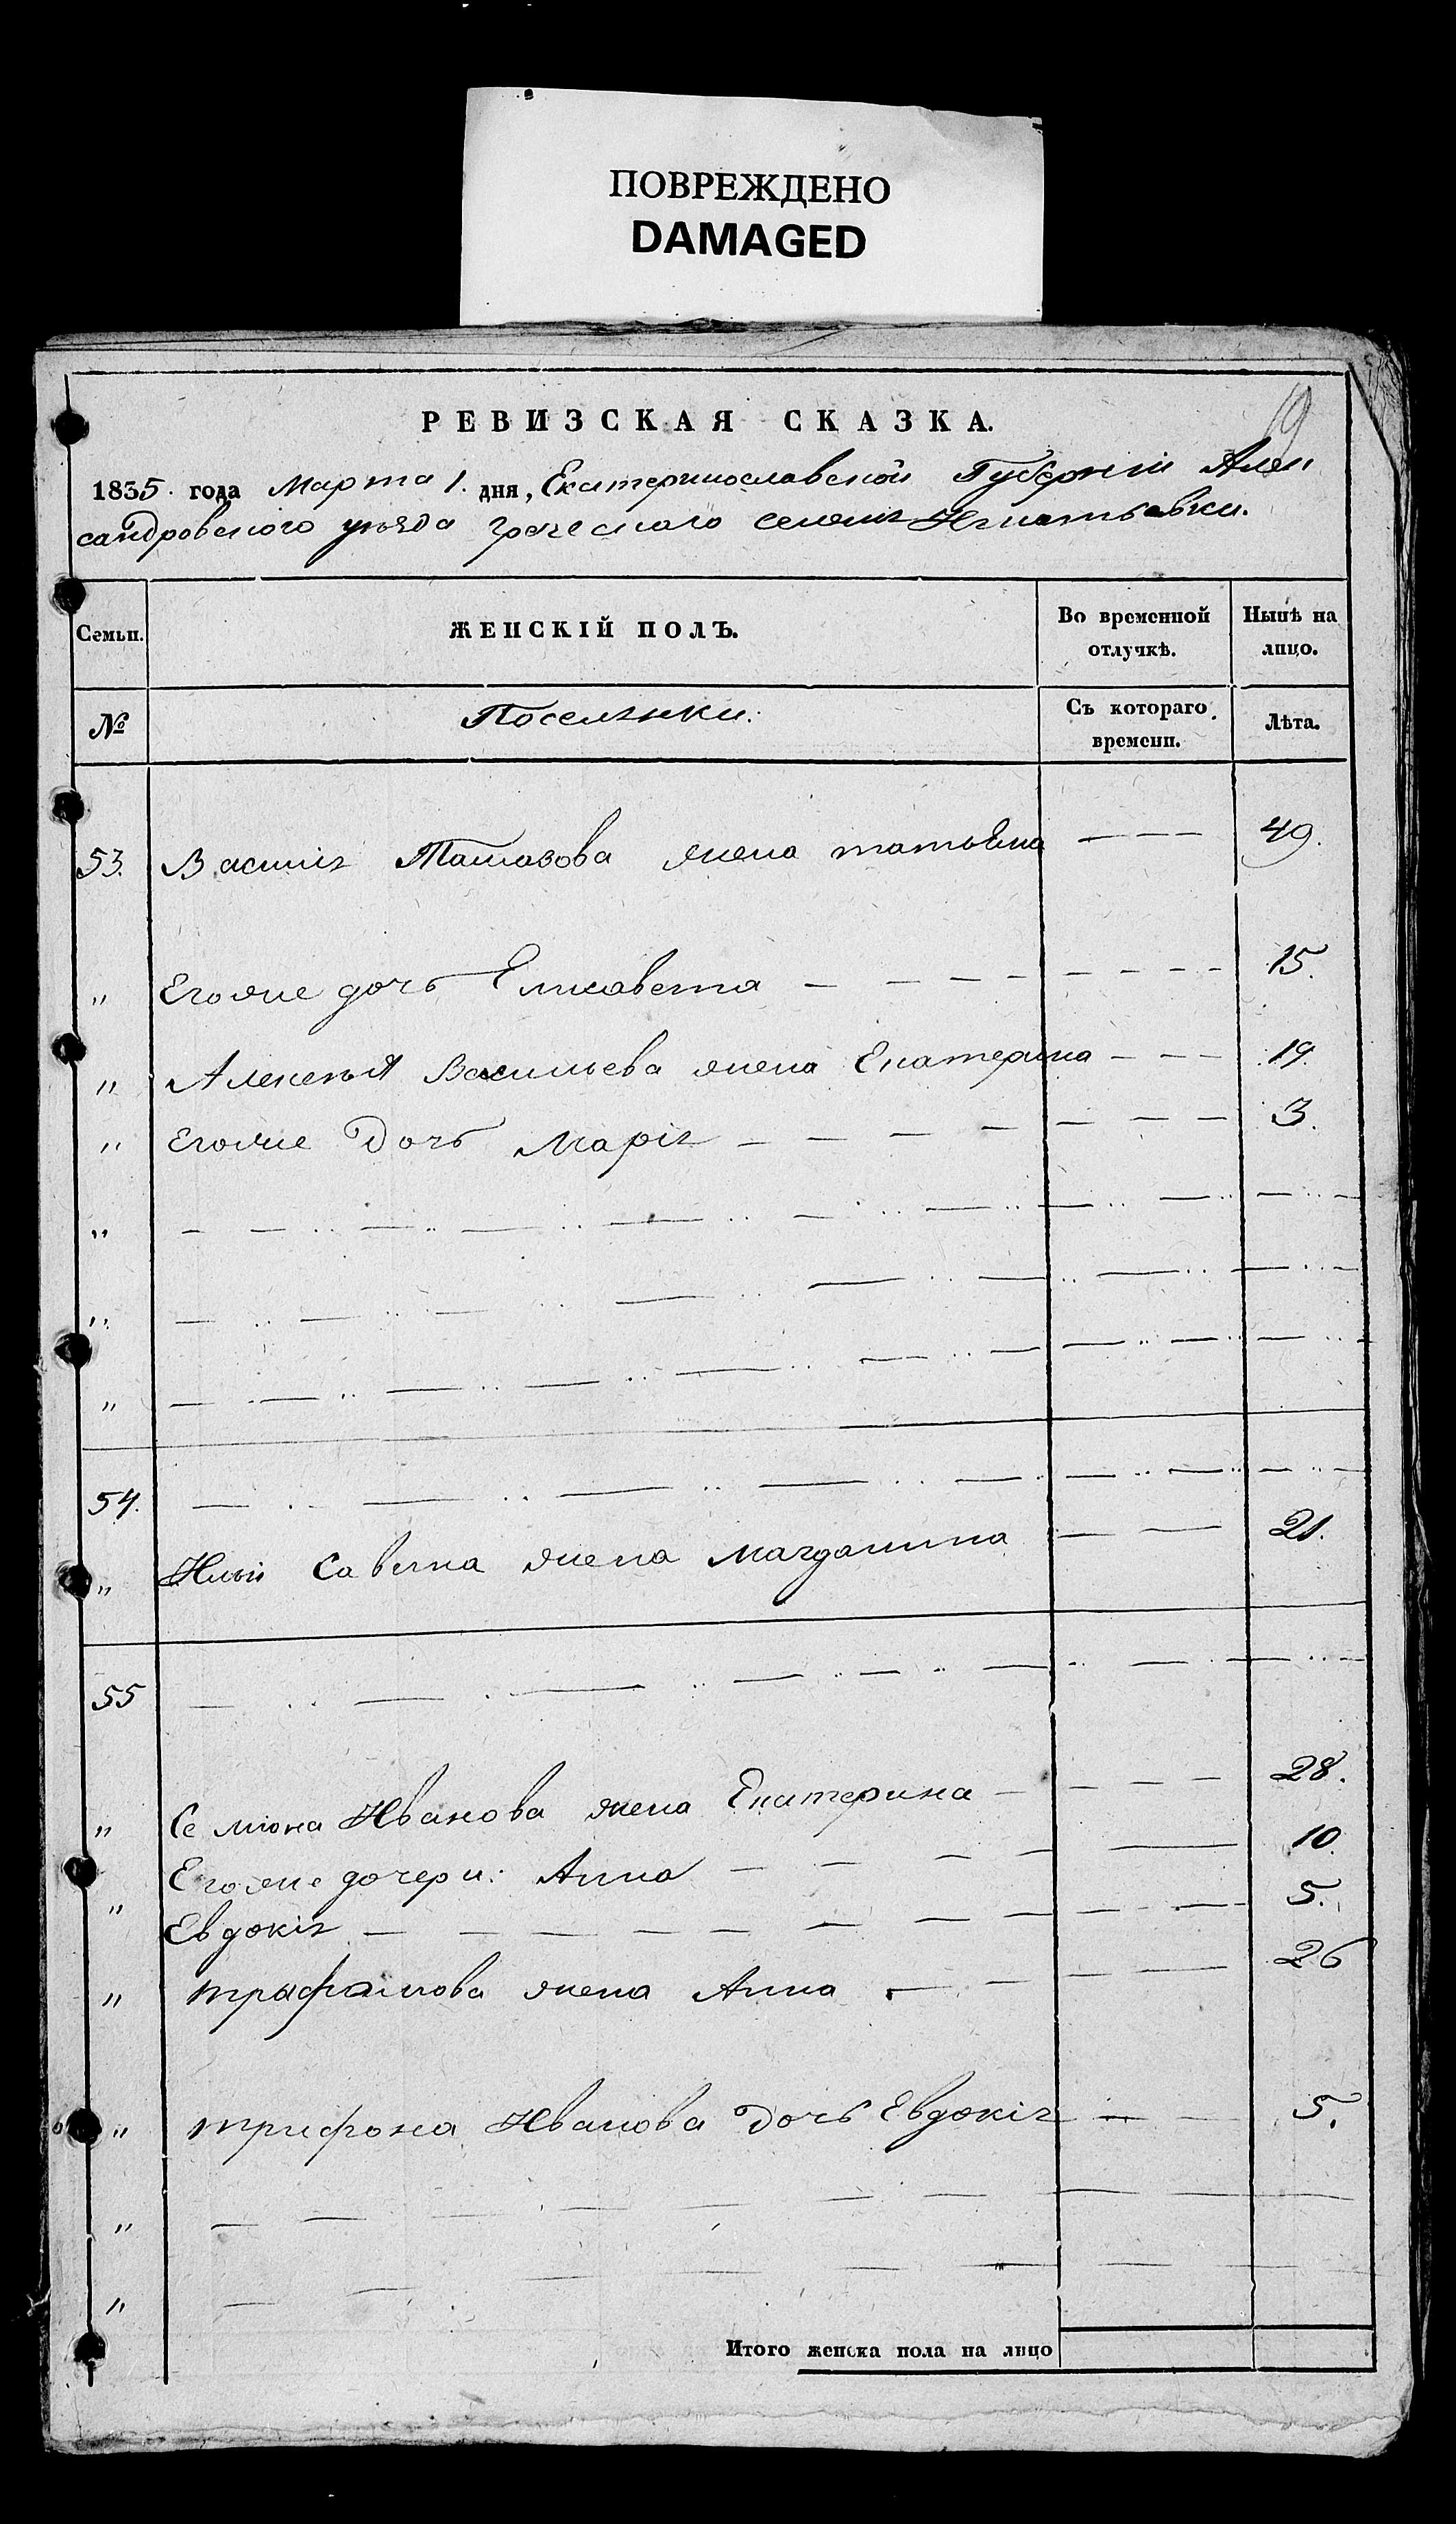 ПОВРЕЖДЕНО
DAMAGED
РЕВИЗСКАЯ СКАЗКА.
19
1835. года Марта 1. дня, Екатеринославской Губерніи Алек
сандровского уѣзда греческаго селенія Игнатьевки.
Семьи. ЖЕНСКІЙ ПОЛЪ. Во временной отлучкѣ. Нынѣ на лицо.
№ Поселянки: Съ котораго времени. Лѣта.
53. Василія Ташазова жена татьяна — — — 49.
" Егоже дочь Елисавета — — — — 15.
" Алексѣя Васильева жена Екатерина — — — 19.
" Егоже Дочь Марія — — — — 3.
"
"
"
54.
" Ильи Савина жена магдалина — — 21.
55
" Семіона Иванова жена Екатерина — — — 28.
" Егоже дочери: Анна — — — — 10.
Евдокія — — — — 5.
" трафимова жена Анна — — — 26
" трифона Иванова Дочь Евдокія — — 5.
"
"
Итого женска пола на лицо